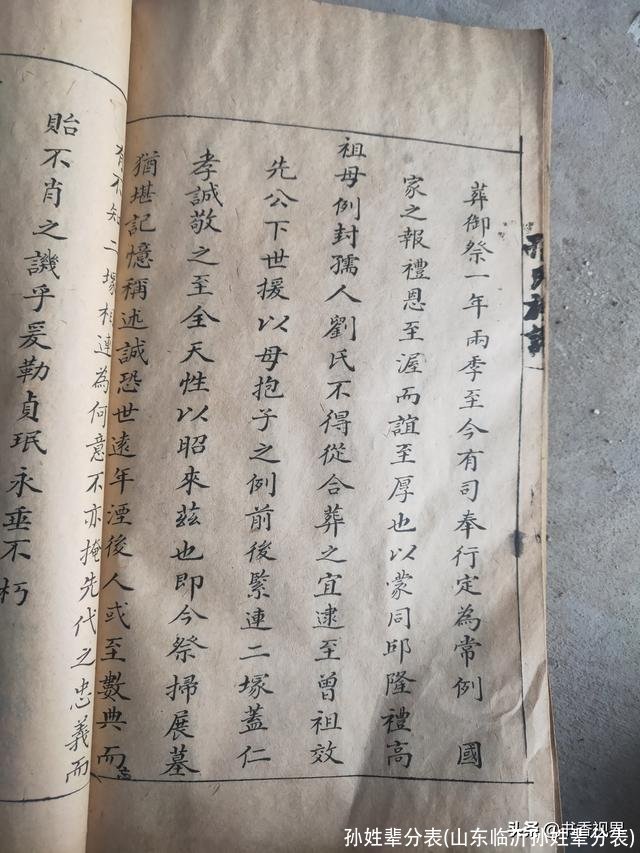 葬御祭一年兩季至今有司奉行定為常例 國
家之報禮恩至渥而誼至厚也以蒙同邱隆禮高
祖母例封孺人劉氏不得從合葬之宜逮至曾祖效
先公下世援以母抱子之例前後緊連二塚蓋仁
孝誠敬之至全天性以昭來茲也即今祭掃展墓
猶堪記憶稱述誠恐世遠年湮後人或至數典而
不知二塚相連為何意不亦掩先代之忠義而
貽不肖之譏乎爰勒貞珉永垂不朽
族譜
头条 @书香视界
孙姓辈分表(山东临沂孙姓辈分表)